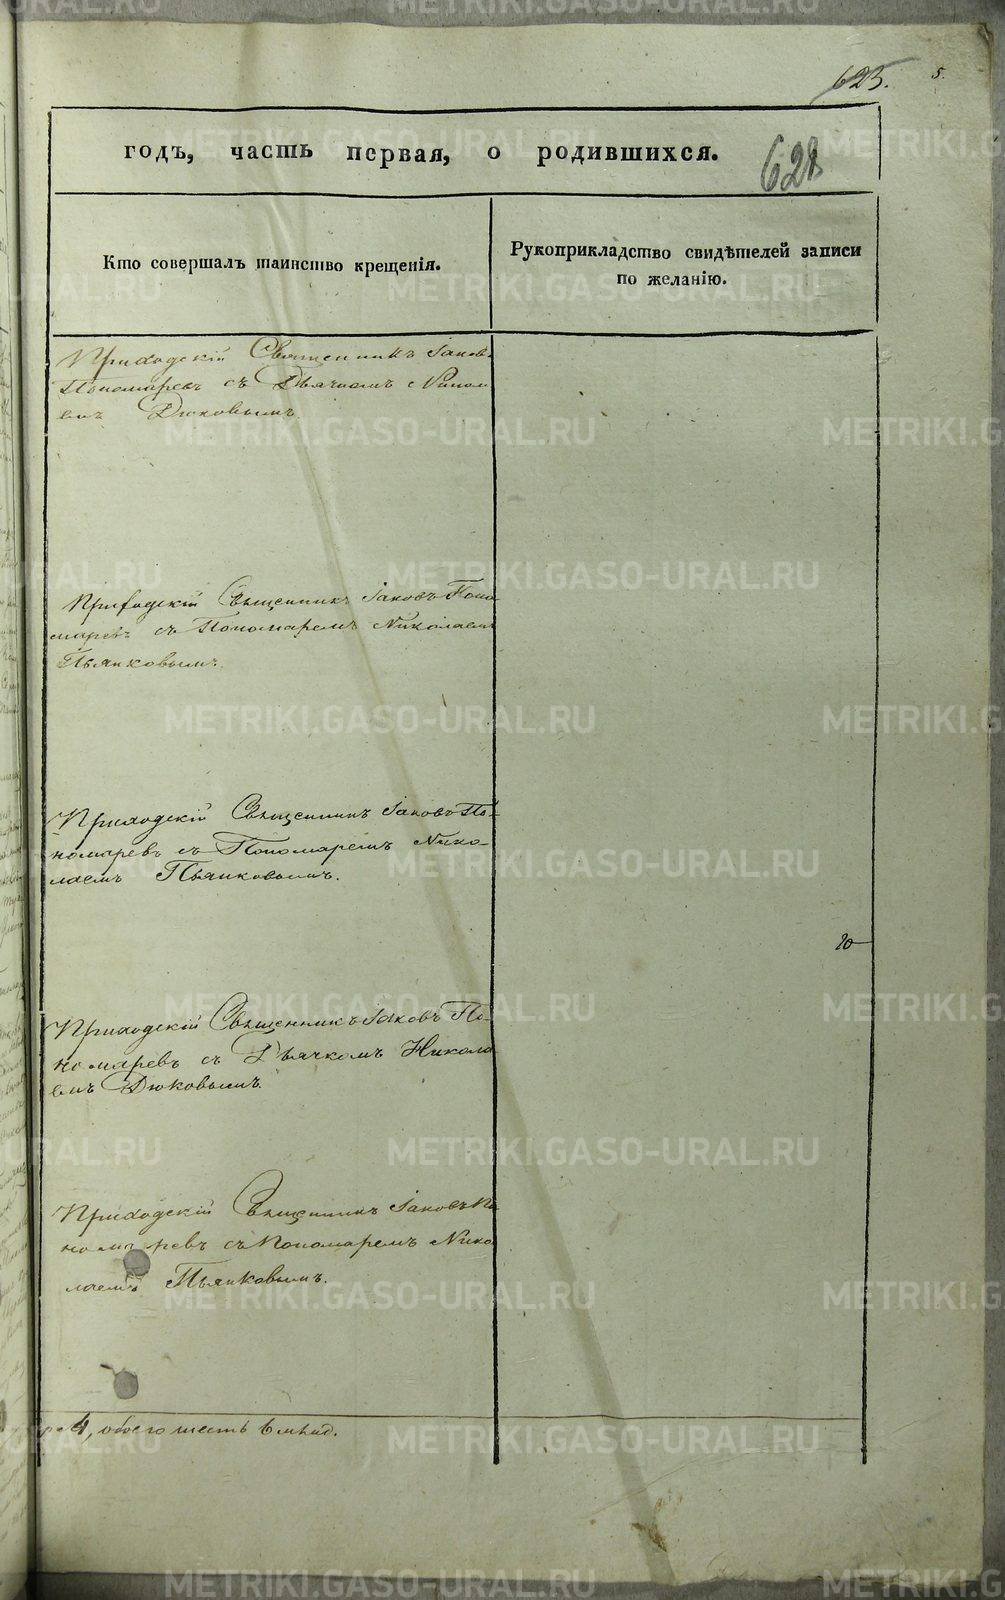 625. 5.
годъ, часть первая, о родившихся.
628
Кто совершалъ таинство крещенія.
Рукоприкладство свидѣтелей записи
по желанію.
Приходскій Священникъ Іаковъ
Пономаревъ съ Дьячкомъ Никола
емъ Дюковымъ.
Приходскій Священникъ Іаковъ Поно
маревъ съ Пономаремъ Николаемъ
Пьянковымъ.
Приходскій Священникъ Іаковъ По-
номаревъ съ Пономаремъ Нико-
лаемъ Пьянковымъ.
Приходскій Священникъ Іаковъ По-
номаревъ съ Дьячкомъ Никола
емъ Дюковымъ.
Приходскій Священникъ Іаковъ По
номаревъ съ Пономаремъ Нико
лаемъ Пьянковымъ.
4, обоего шесть 6
METRIKI.GASO-URAL.RU